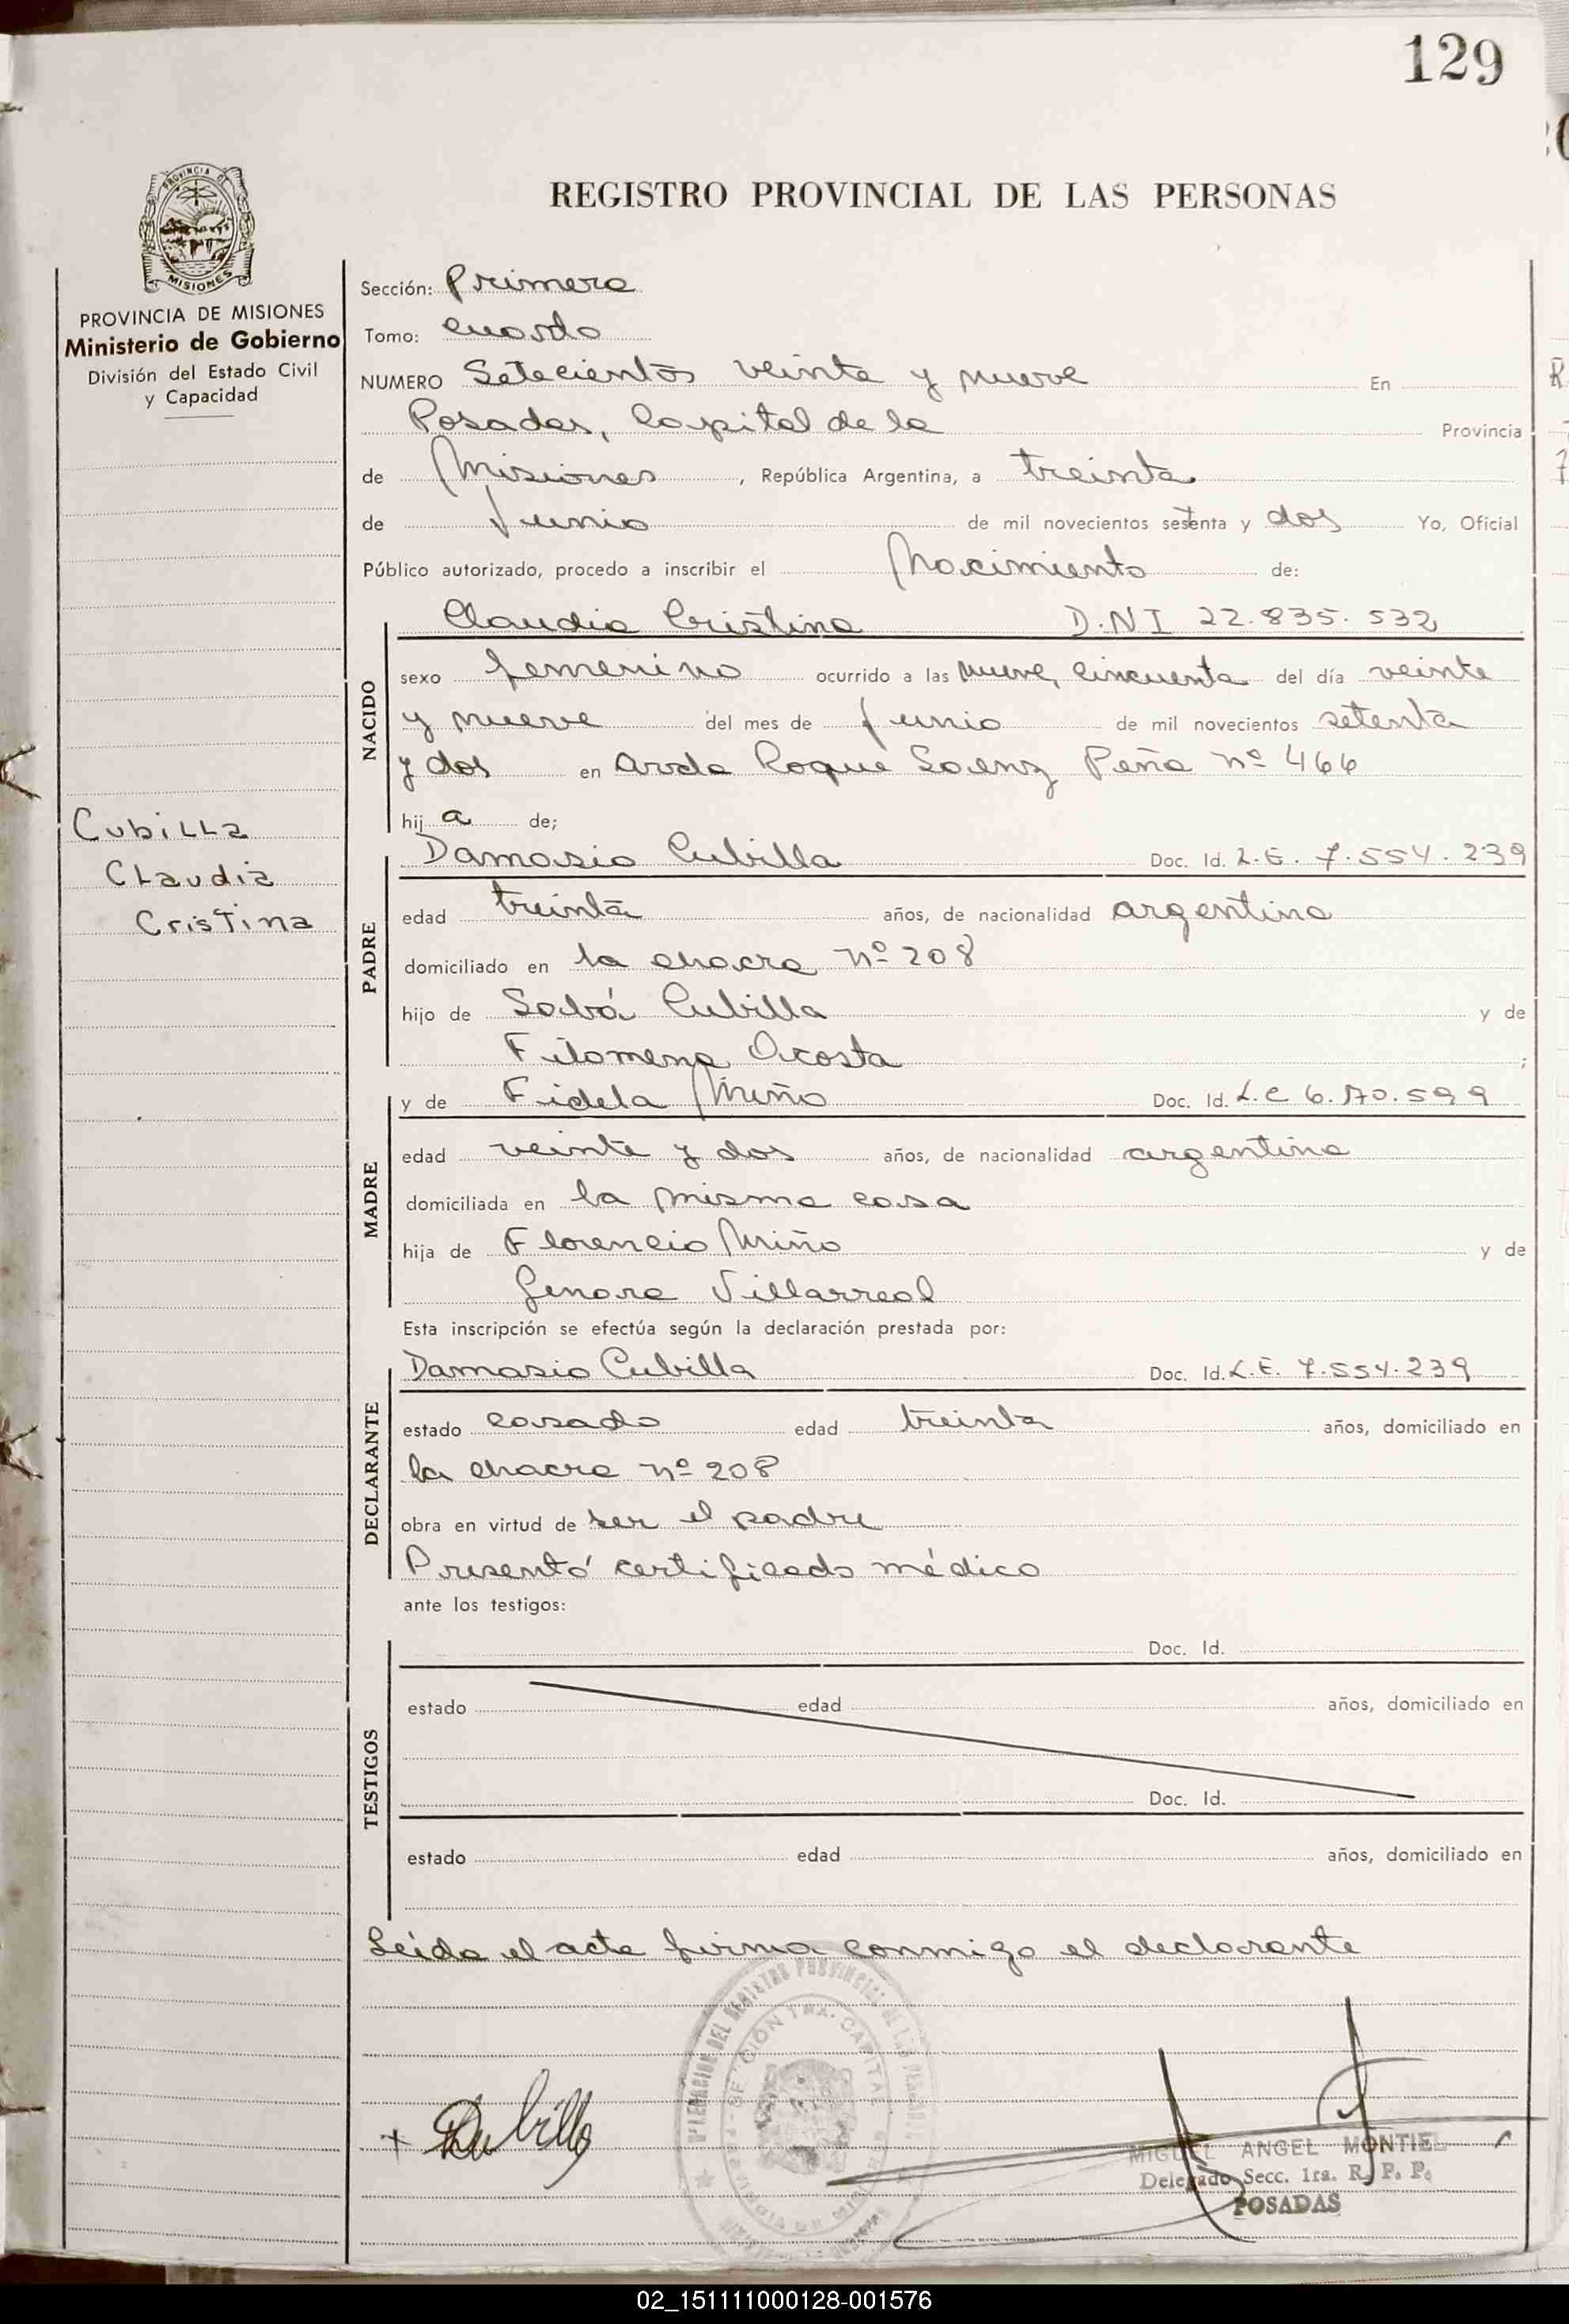 129
PROVINCIA DE
MISIONES
REGISTRO PROVINCIAL DE LAS PERSONAS
PROVINCIA DE MISIONES
Ministerio de Gobierno
División del Estado Civil
y Capacidad
Cubilla
Claudia
Cristina
Sección: Primera
Tomo: cuarto
NUMERO Setecientos veinte y nueve En
Posadas, Capital de la Provincia
de Misiones, República Argentina, a treinta
de Junio de mil novecientos setenta y dos Yo, Oficial
Público autorizado, procedo a inscribir el Nacimiento de:
Claudia Cristina D.N.I 22.835.532
NACIDO
sexo femenino ocurrido a las nueve, cincuenta del día veinte
y nueve del mes de Junio de mil novecientos setenta
y dos en Avda Roque Saenz Peña nº 466
hij a de;
PADRE
Damasio Cubilla Doc. Id. L.E. 7.554.239
edad treinta años, de nacionalidad argentina
domiciliado en la chacra nº 208
hijo de Sabá Cubilla y de
Filomena Acosta ;
MADRE
y de Fidela Miño Doc. Id. L.C 6.
edad veinte y dos años, de nacionalidad argentina
domiciliada en la misma casa
hija de Florencio Miño y de
Genara Villarreal
Esta inscripción se efectúa según la declaración prestada por:
DECLARANTE
Damasio Cubilla Doc. Id. L.E. 7.554.239
estado casado edad treinta años, domiciliado en
la chacra nº 208
obra en virtud de ser el padre
Presentó certificado médico
ante los testigos:
TESTIGOS
Doc. Id.
estado edad años, domiciliado en
Doc. Id.
estado edad años, domiciliado en
Leida el acta firma conmigo el declarante
DEL REGISTRO PROVINCIAL DE LAS
SECCION 1RA. CAPITAL
+ DCubilla
MIGUEL ANGEL MONTIEL
Delegado Secc. 1ra. R. P. P.
POSADAS
02_151111000128-001576